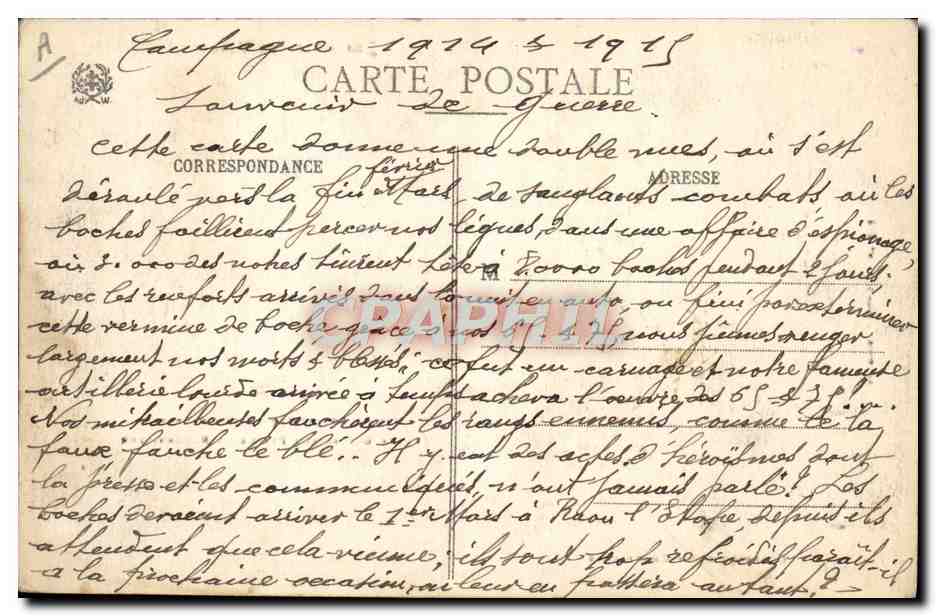 A
Campagne 1914 & 1915
CARTE POSTALE
AD W.
Souvenir de Guerre.
cette carte donne une double vues, où s'est
CORRESPONDANCE
ADRESSE
février
déroulé vers la fin Mars, de sanglants combats où les
boches faillirent percer nos lignes, dans une affaire d'espionage,
où 3.000 des notres tinrent tête à 8.0000 boches pendant 2 jours.
M
avec les renforts arrivés dans la nuit en auto, on fini par exterminer
CPAPHIL
cette vermine de boche grace à nos 65 & 75, nous fîmes venger
largement nos morts & blessés, ce fut un carnage et notre fameuse
artillerie lourde arrivée à temps acheva l'oeuvre des 65 & 75!
Nos mitrailleuses fauchèrent les rangs ennemis, comme la
faux fauche le blé.. Il y eut des actes d'héroïsmes dont
la presse et les communiqués, n'ont jamais parlé? Les
boches devaient arriver le 1er Mars à Raon l'Etape depuis ils
attendent que cela vienne; ils sont trop refroidis paraît-il
a la prochaine occasion, on leur en passera autant?